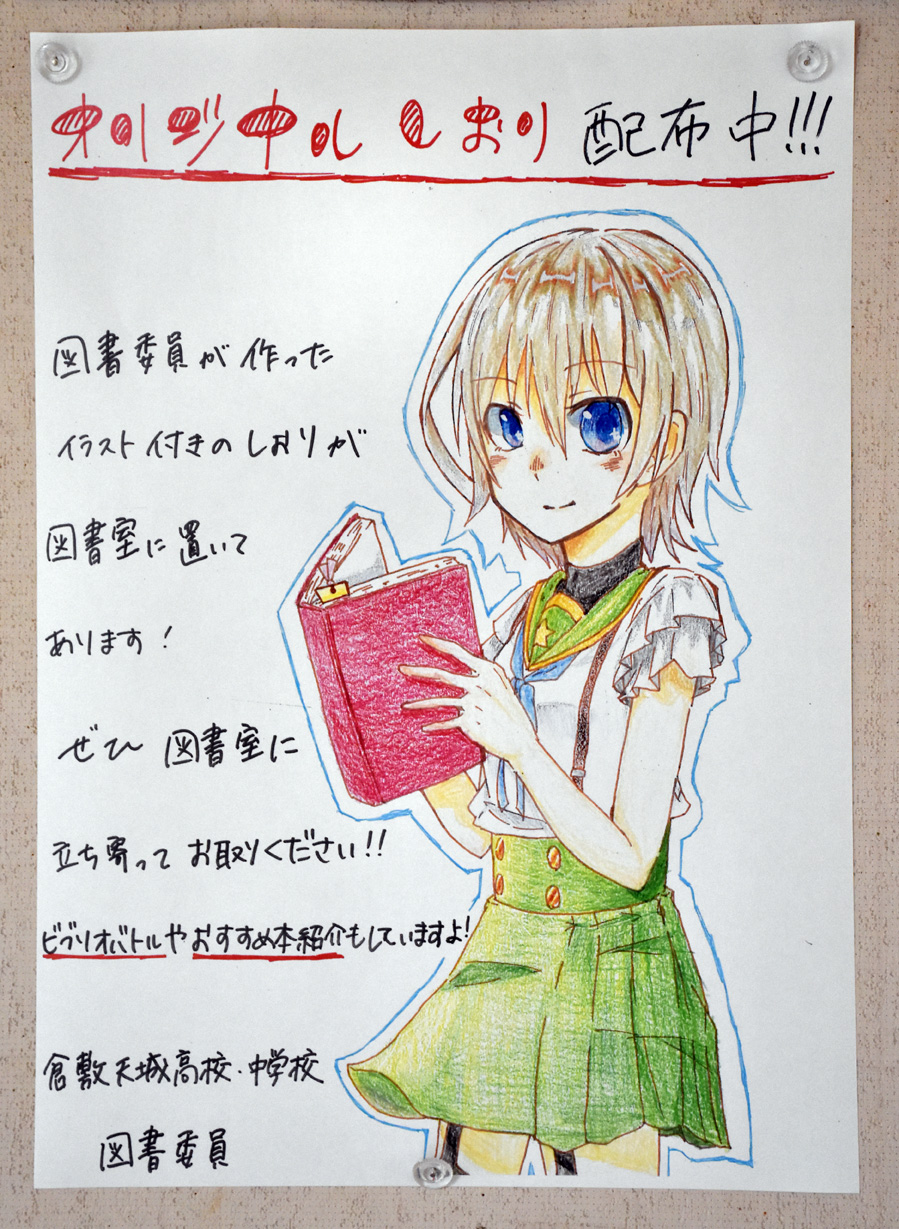 オリジナルしおり 配布中!!!
図書委員が作った
イラスト付きのしおりが
図書室に置いて
あります!
ぜひ 図書室に
立ち寄って お取りください!!
ビブリオバトルやおすすめ本紹介もしていますよ!
倉敷天城高校・中学校
図書委員